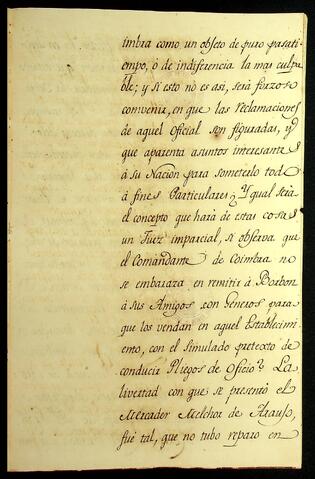 imbra como un objeto de puro pasati-
empo, ò de indiferencia la mas culpa-
ble; y si esto no es asi, será forzoso
convenir, en que las reclamaciones
de aquel Oficial son figuradas, y
que aparenta asuntos interesantes
à su Nacion para someterlo todo
à fines Particulares ¿Y qual seria
el concepto que hará de estas cosas
un Juez imparcial, si observa que
el Comandante de Coimbra no
se embaraza en remitir à Borbon
à sus Amigos con Generos para
que los vendan en aquel Establecimi-
ento, con el simulado pretexto de
conducir Pliegos de Oficio? La
livertad con que se presentó el
Mercador Melchor de Araujo,
fué tal, que no tubo reparo en